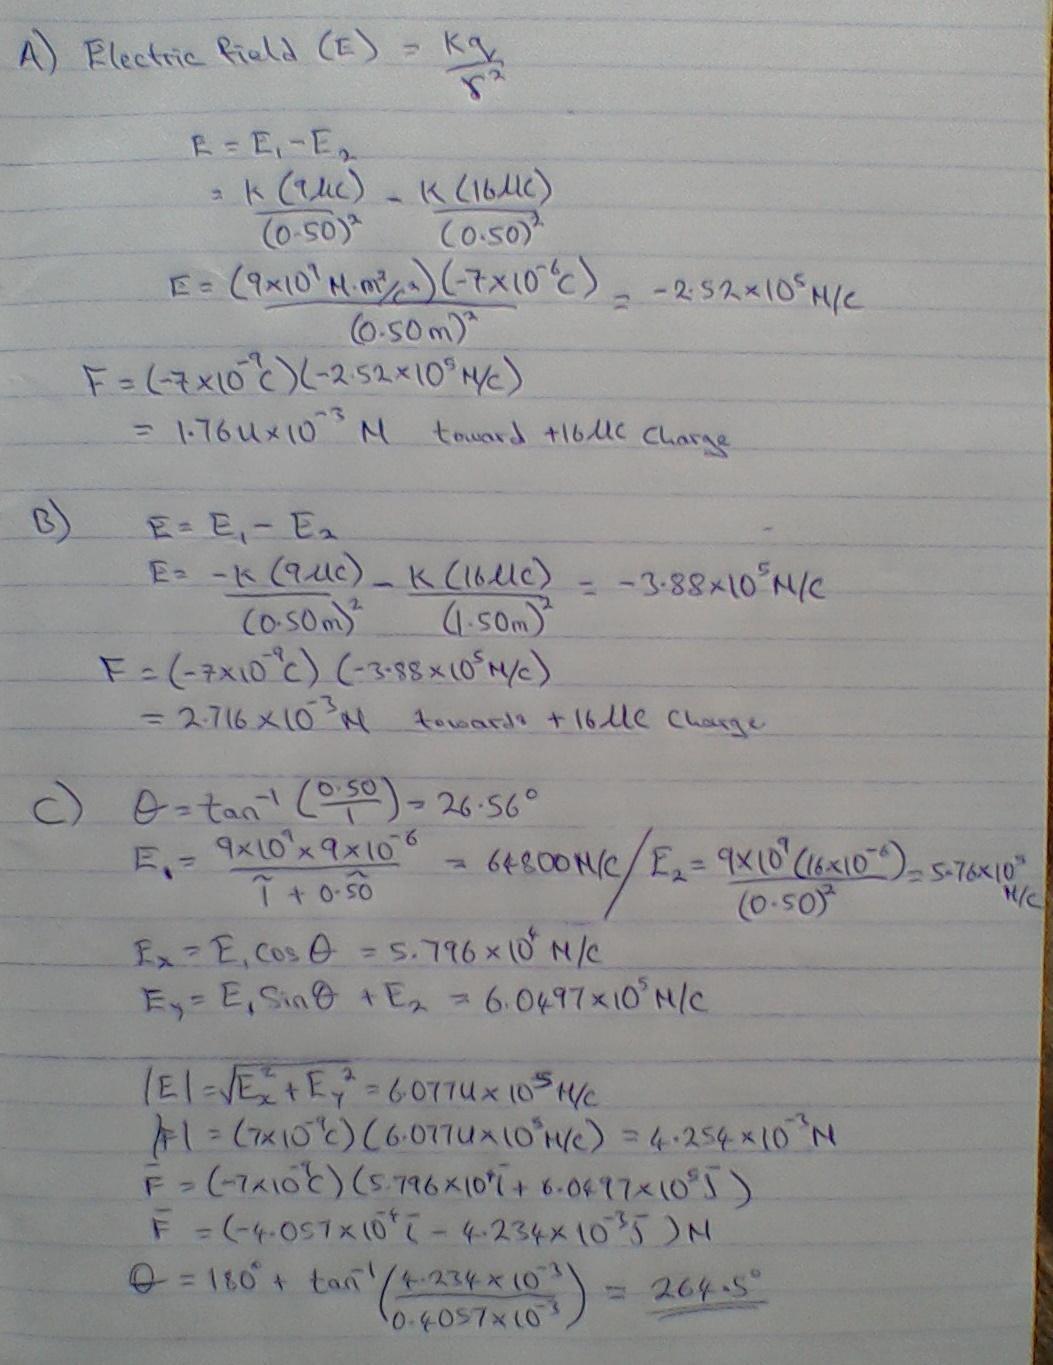 A) Electric field (E) = Kq/r²
E = E₁ - E₂
= K(9μC)/(0.50)² - K(16μC)/(0.50)²
E = (9×10⁹ N·m²/C²)(-7×10⁻⁶C)/(0.50m)² = -2.52×10⁵ N/C
F = (-7×10⁻⁹C)(-2.52×10⁵ N/C)
= 1.764×10⁻³ N toward +16μC Charge
B) E = E₁ - E₂
E = -K(9μC)/(0.50m)² - K(16μC)/(1.50m)² = -3.88×10⁵ N/C
F = (-7×10⁻⁹C)(-3.88×10⁵ N/C)
= 2.716×10⁻³ N towards +16μC Charge
C) θ = tan⁻¹(0.50/1) = 26.56°
E₁ = 9×10⁹×9×10⁻⁶/1² + 0.50² = 64800 N/C / E₂ = 9×10⁹(16×10⁻⁶)/(0.50)² = 5.76×10⁵ N/C
Eₓ = E₁cosθ = 5.796×10⁴ N/C
Eᵧ = E₁Sinθ + E₂ = 6.0497×10⁵ N/C
|E| = √Eₓ² + Eᵧ² = 6.0774×10⁵ N/C
|F| = (7×10⁻⁹C)(6.0774×10⁵N/C) = 4.254×10⁻³N
F̄ = (-7×10⁻⁹C)(5.796×10⁴ī + 6.0497×10⁵j̄)
F̄ = (-4.057×10⁻⁴ī - 4.234×10⁻³j̄)N
θ = 180° + tan⁻¹(4.234×10⁻³/0.4057×10⁻³) = 264.5°